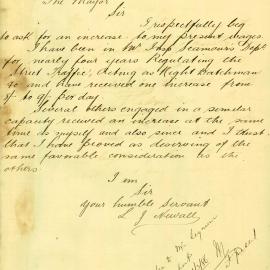 The Mayor
Sir
I respectfully beg
to ask for an increase to my present wages.
I have been in Mr Insp Seamour's Dept
for nearly four years Regulating the
Street Traffic, Acting as Night Watchman
&c and have received one increase from
8/- to 9/- per day
Several others engaged in a similar
capacity received an increase at the same
time as myself and also since and I trust
that I have proved as deserving of the
same favorable consideration as the
others
I am
Sir
Your humble Servant
L J Newall
to Mr Seymour